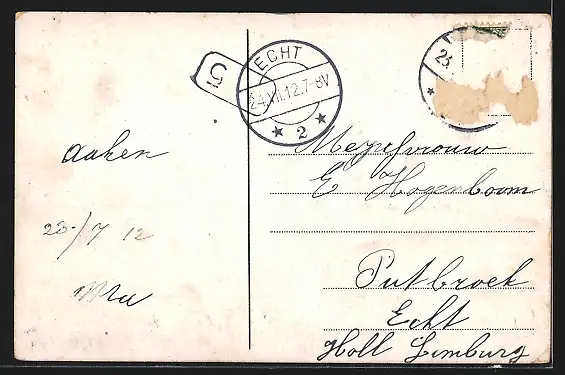 ECHT
24.VII.12.7-8V
2
5
23.
Aachen
23/7 12
Mejufvrouw
E Hogenboom
Putbroek
Echt
Holl Limburg